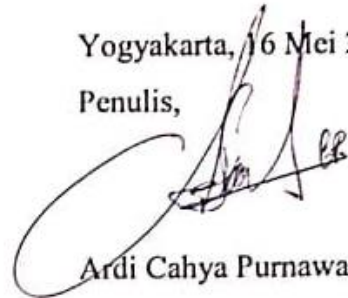 Yogyakarta, 16 Mei 2
Penulis,
Ardi Cahya Purnawa